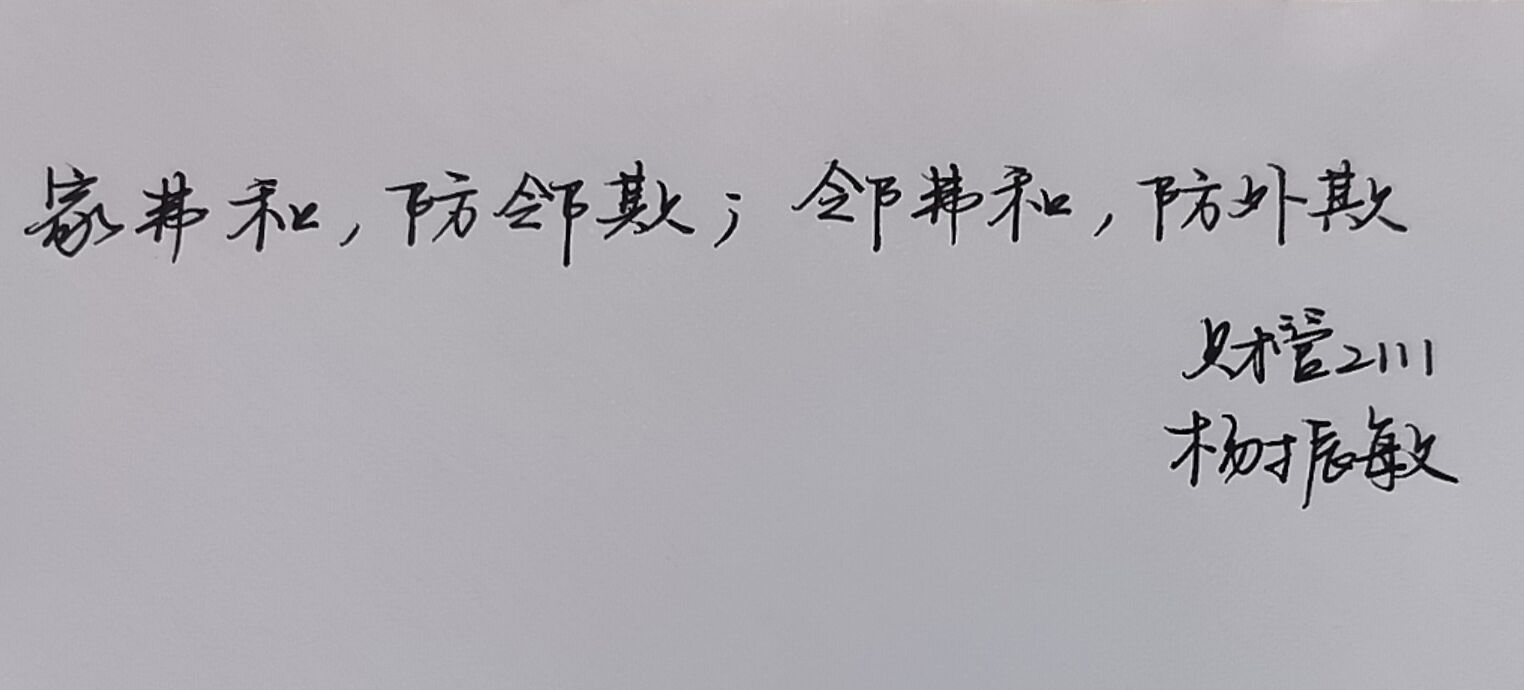 家弗和，防邻欺；邻弗和，防外欺
财管2111
杨振敏